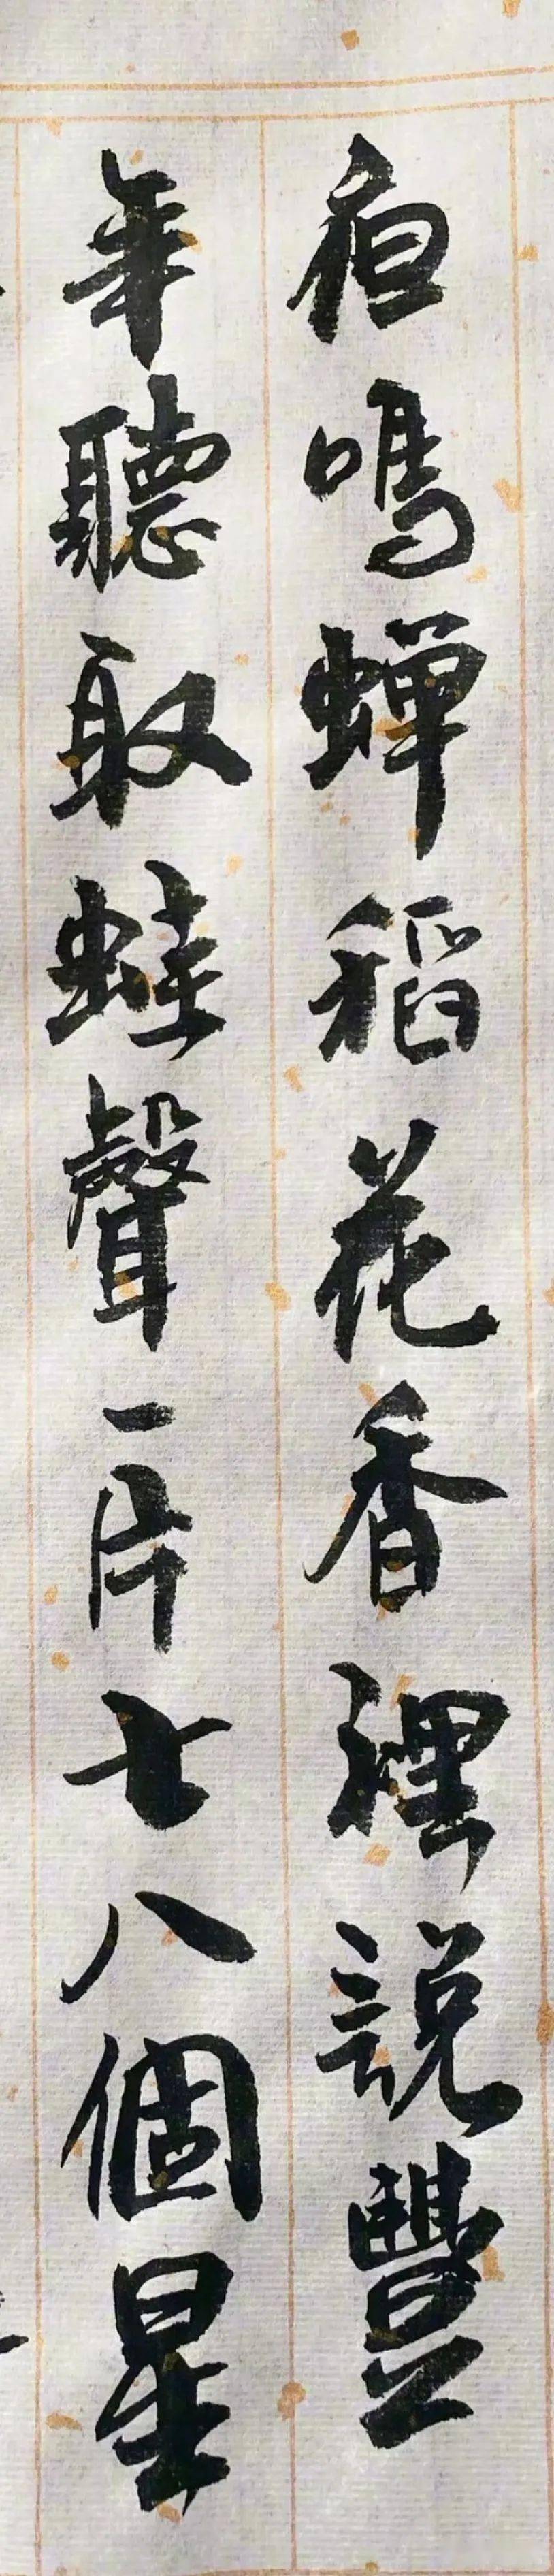 夜鳴蝉稻花香裡説豐
年聽取蛙聲一片七八個星